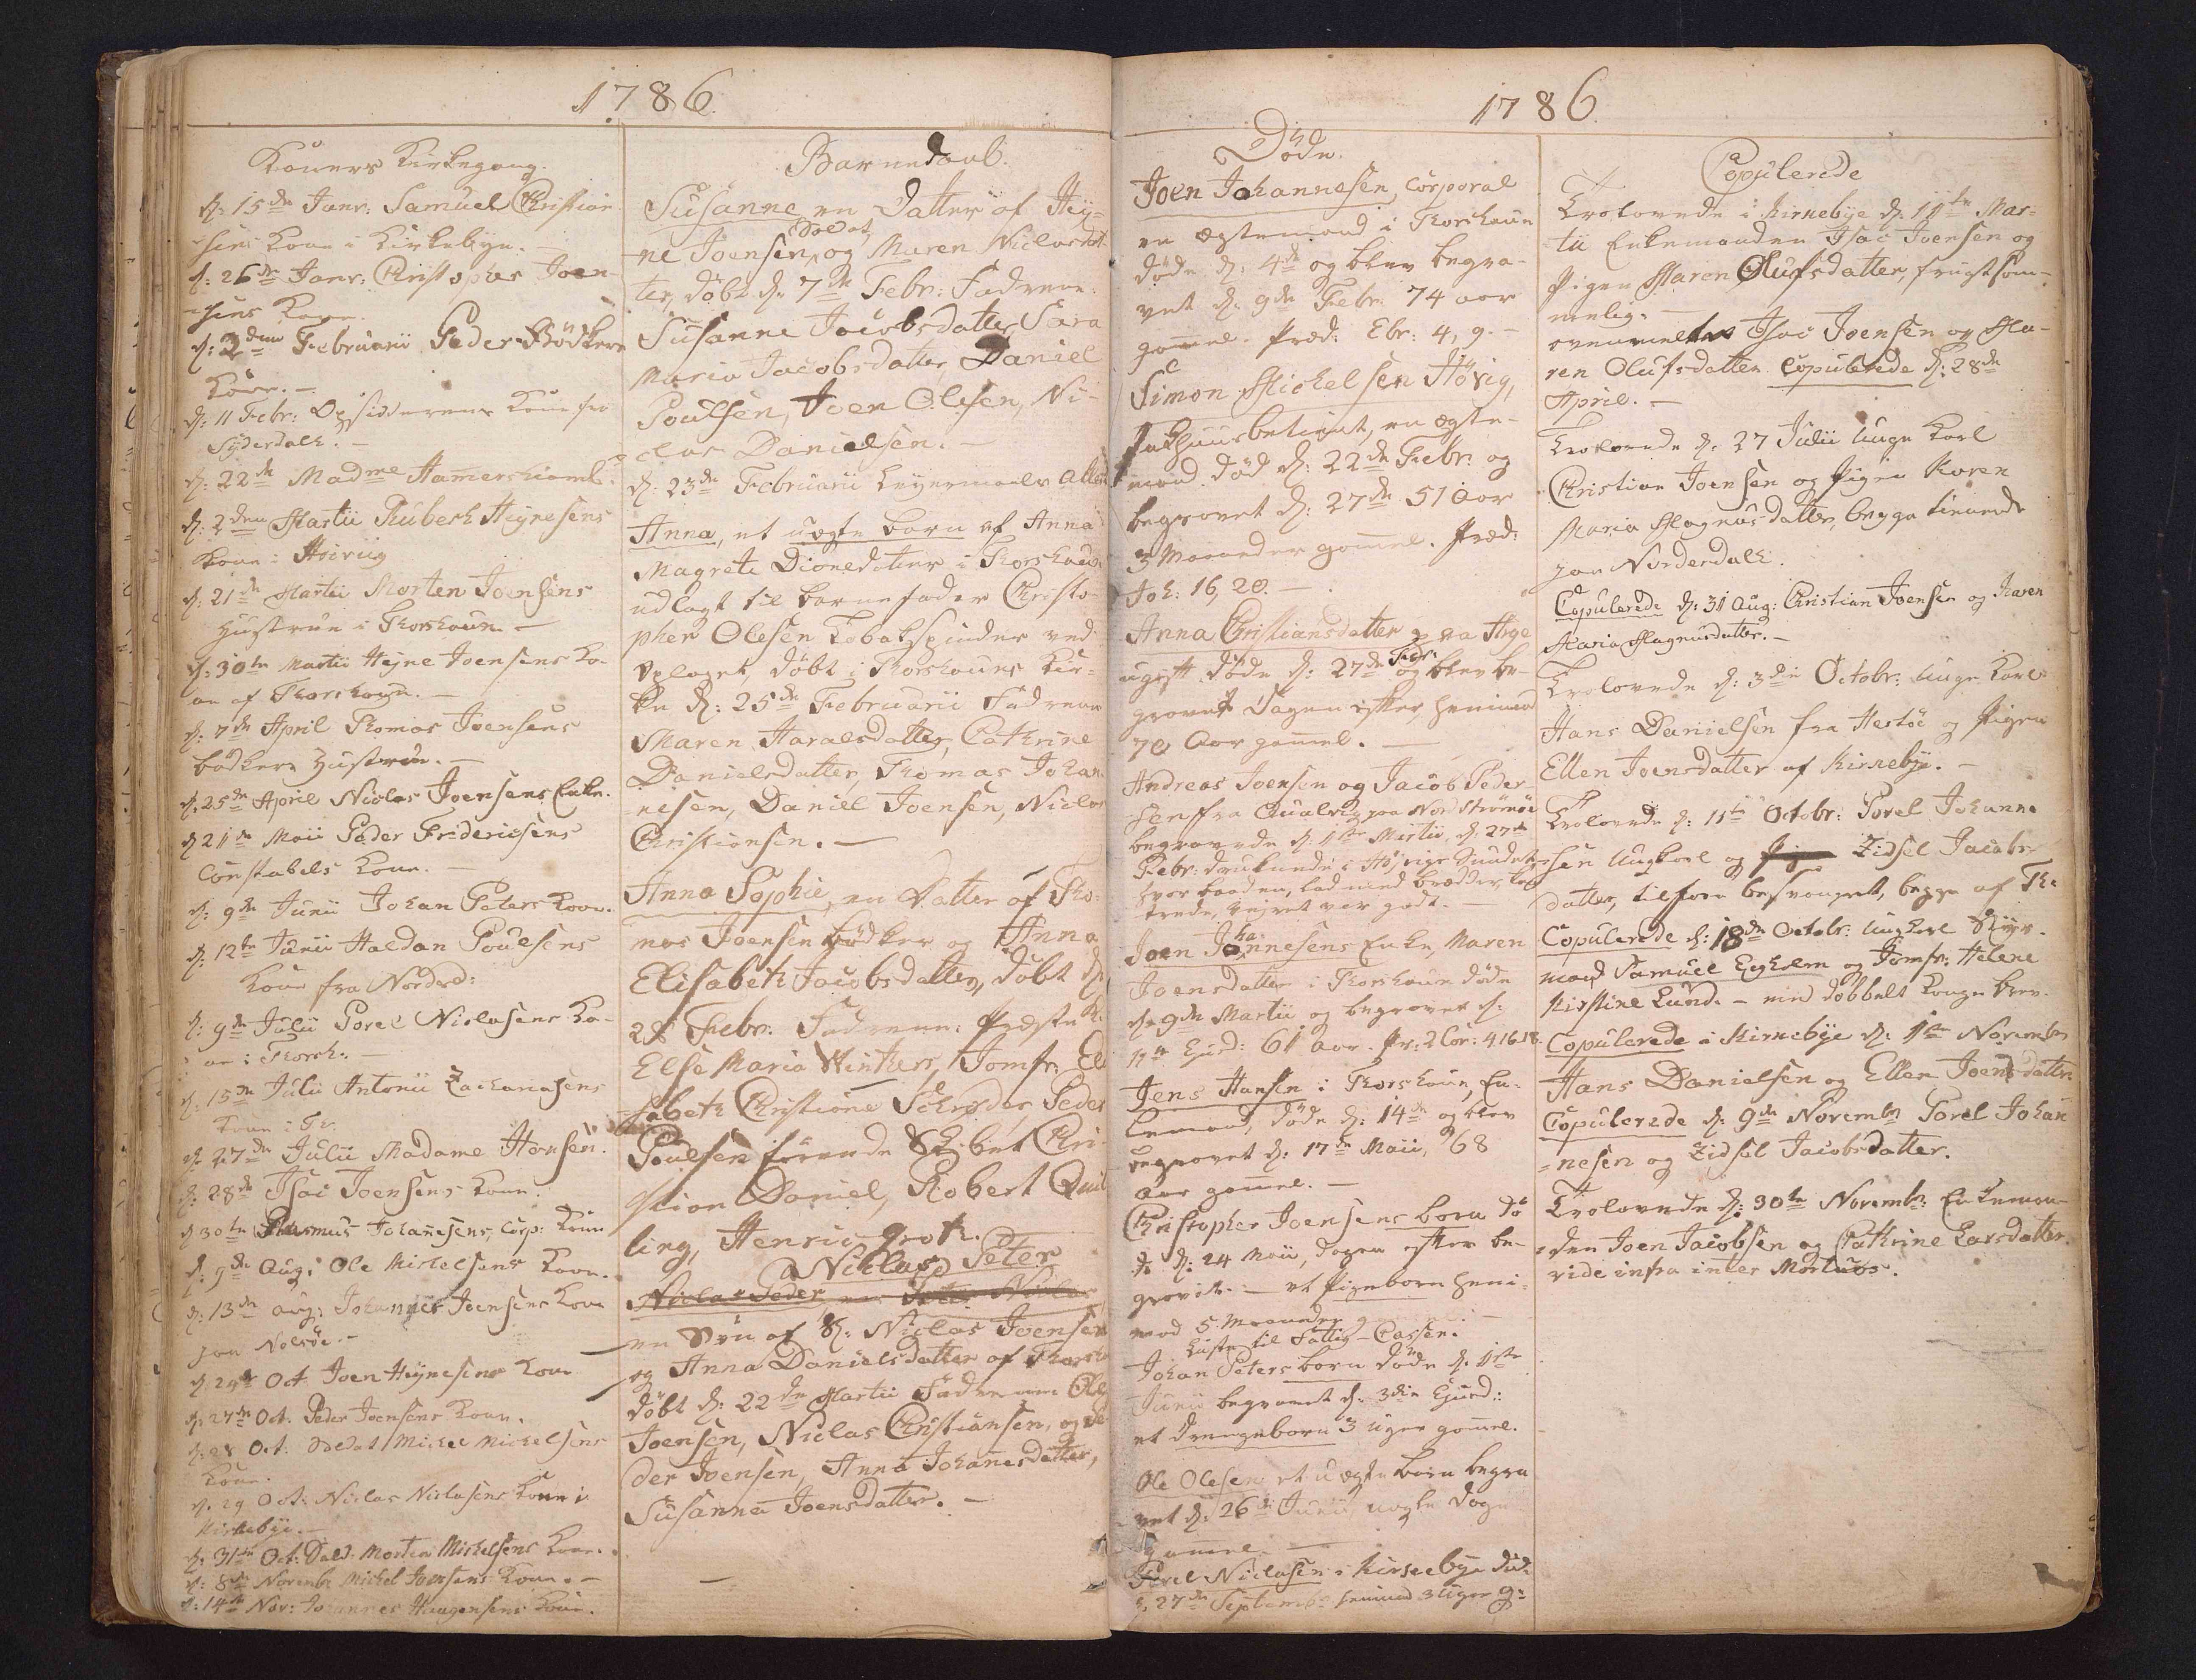 1786.
Koners Kirkegang.
d: 15de Janr: Samuel Christian-
sens Kone i Kirkebye. -
d: 26de Janr: Christopher Joen-
sens Kone.
d: 2den Februarii Peder Bödkers
Kone. -
d: 11 Febr: Opsidderens Kone fra
Syderdalh. -
d: 22de Madme Hamershaimb.
d: 2den Martii Rubek Heynesens
Kone i Hoiviig
d: 21de Martii Morten Joensens
Hustrue i Thorshaun. -
d: 30te Martii Heyne Joensens Ko-
ne af Thorshaun. -
d: 7de April Thomas Joensens
bödkers Hustrue. -
d: 25de April Niclas Joensens Enke.
d 21de Maii Peder Fridericsens
Constabels Kone. -
d: 9de Junii Johan Peters Kone.
d: 12te Junii Haldan Poulsens
Kone fra Norderd:
d: 9de Julii Porel Niclasens Ko-
ne i Thorsh: -
d: 15de Julii Antonii Zachariasens
Kone i Th.
d. 27de Julii Madame Hansen.
d: 28de Isac Joensens Kone.
d 30te Rasmus Johanesens, Corp: Kone
d: 9de Aug: Ole Michelsens Kone.
d: 13de aug: Johannes Joensens Kone
paa Nolsöe. -
d. 24de Oct Joen Heynesens Kone
d. 27de Oct. Peder Joensens Kone.
d: 28 Oct. Soldat Michel Michelsens
Kone.
d. 29 Oct: Niclas Niclasens Kone i
Kirkebye. -
d: 31te Oct: Sold: Morten Michelsens Kone.
d: 8de Novembr Michel Joensens Kone. -
d: 14de Nov: Johannes Haagensens Kone.
Barnedaab.
Susanne en Datter af Hey-
Soldat,
ne Joensen, og Maren Niclasdat-
ter, döbt d. 7de Febr: Fadrene:
Susanne Jacobsdatter, Sara
Maria Jacobsdatter, Daniel
Poulsen, Joen Olesen, Ni-
clas Danielsen. -
d. 23de Februarii
Anna, et uægte barn af Anna
Magrete Dionedatter i Thorshaun
udlagt til barnefader Christo-
pher Olesen Tobakspinder ved
döbt i Thorshauns Kir-
ke d: 25de Februarii Fadrene
Maren Haraldsdatter, Cathrine
Danielsdatter, Thomas Johan-
nesen, Daniel Joensen, Niclas
Christiansen. -
Anna Sophie, en Datter af Tho-
mas Joensen Bödker og Anna
Elisabeth Jacobsdatter, döbt d:
28 Febr. Fadrene: Præste K:
Else Maria Winthers, Jomfr. Eli
sabeth Christiane Schröder, Peder
Poulsen förende Skibet Chri-
stian Daniel, Robert Quil
ling, Henric Groth.
Niclas Peter
en Sön af S: Niclas Joensen
og Anna Danielsdatter af Thorsh
döbt d: 22de Martii Fadrene Ole
Joensen, Niclas Christiansen, og Pe
der Joensen, Anna Johanesdatter,
Susanna Joensdatter. -
1786.
Döde.
Joen Johannesen, Corporal
en ægtemand i Thorshaun
döde d. 4de og blev begra-
vet d. 9de Febr: 74 aar
gamel. Præd: Ebr: 4, 9. -
Simon Michelsen Hövig,
Pakhuusbetient, en ægte-
mand död d: 22de Febr: og
begravet d: 27de 51 Aar
3 Maaneder gamel. Præd:
Joh: 16, 20. -
Anna Christiansdatter paa
Febr:
ugift döde d: 27de og blev be-
gravet Dagen efter, henimod
70 Aar gamel. -
Andreas Joensen og Jacob Peder-
sen fra Qualvig paa Nord Strömöe
begravede d. 1ste Martii, d. 27de
Febr: druknede i Höjvigs Sundet
hvor baaden, lad med brædder,
trede, Vejret var godt. -
ha
Joen Jonnesens Enke, Maren
Joensdatter i Thorshaun döde
d. 9de Martii og begraven d:
17de Ejusd: 61 Aar. Pr: 2 Cor: 4.16.18.
Jens Hansen i Thorshaun, En-
kemand, döde d: 14de og blev
begravet d: 17de Maii, 68
Aar gamel. -
Christopher Joensens barn dö-
de d: 24 Maii, dagen efter be-
gravet. - et Pigebarn heni-
mod 5 Maaneder
Kiste til Fattig-Cassen.
Johan Peters barn döde d. 1ste
Junii begravet d. 3die Ejusd:
et drengebarn 3 uger gamel.
Ole Olesen et uægte barn begra
vet d: 26de Junii nogle dage
gamel. -
Porel Niclasen i Kirkebye död:
d. 27de Septembr henimod 3 uger g:
Copulerede
Trolovede i Kirkebye d. 11te Mar-
tii Enkemanden Isac Joensen og
Pigen Maren Olufsdatter, frugtsom-
melig. -
ovenmeldte Isac Joensen og Ma-
ren Olufsdatter Copulerede d: 28de
April. -
Trolovede d. 27 Julii unge Karl
Christian Joensen og Pigen Karen
Maria Magnusdatter, begge tienende
paa Norderdalh.
Copulerede d: 31 Aug: Christian Joensen og Karen
Maria Magnusdatter. -
Trolovede d: 3die Octobr: unge Karl
Hans Danielsen fra Hestöe og Pigen
Ellen Joensdatter af Kirkebye. -
Trolovede d: 11te Octobr: Porel Johanne
sen ungkarl og Zidsel Jacobs
datter, tilforn besvangret, begge af Th:
Copulerede d: 18de Octobr: ungkarl
mand Samuel Eigholm og Jomfr: Helene
Kirstine Lund. - med döbbelt Konge brev.
Copulerede i Kirkebye d: 1ste Novembr
Hans Danielsen og Ellen Joensdatter
Copulerede d. 9de Novembr Porel Johan
nesen og Zidsel Jacobsdatter.
Trolovede d: 30te Novembr: Enkeman-
den Joen Jacobsen og Cathrine Larsdatter.
vide infra inter Mortuos.